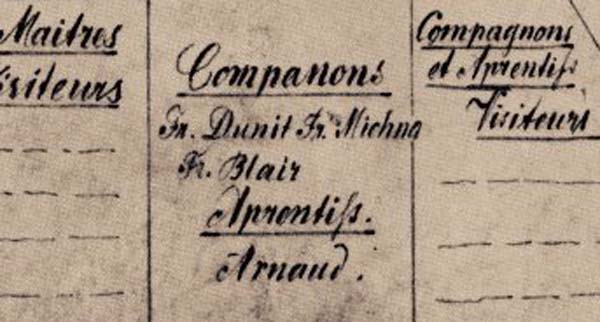 Maitres
Visiteurs
Companons
Fr. Dunit Fr. Michna
Fr. Blair
Aprentifs.
Arnaud.
Compagnons
et Aprentifs
Visiteurs